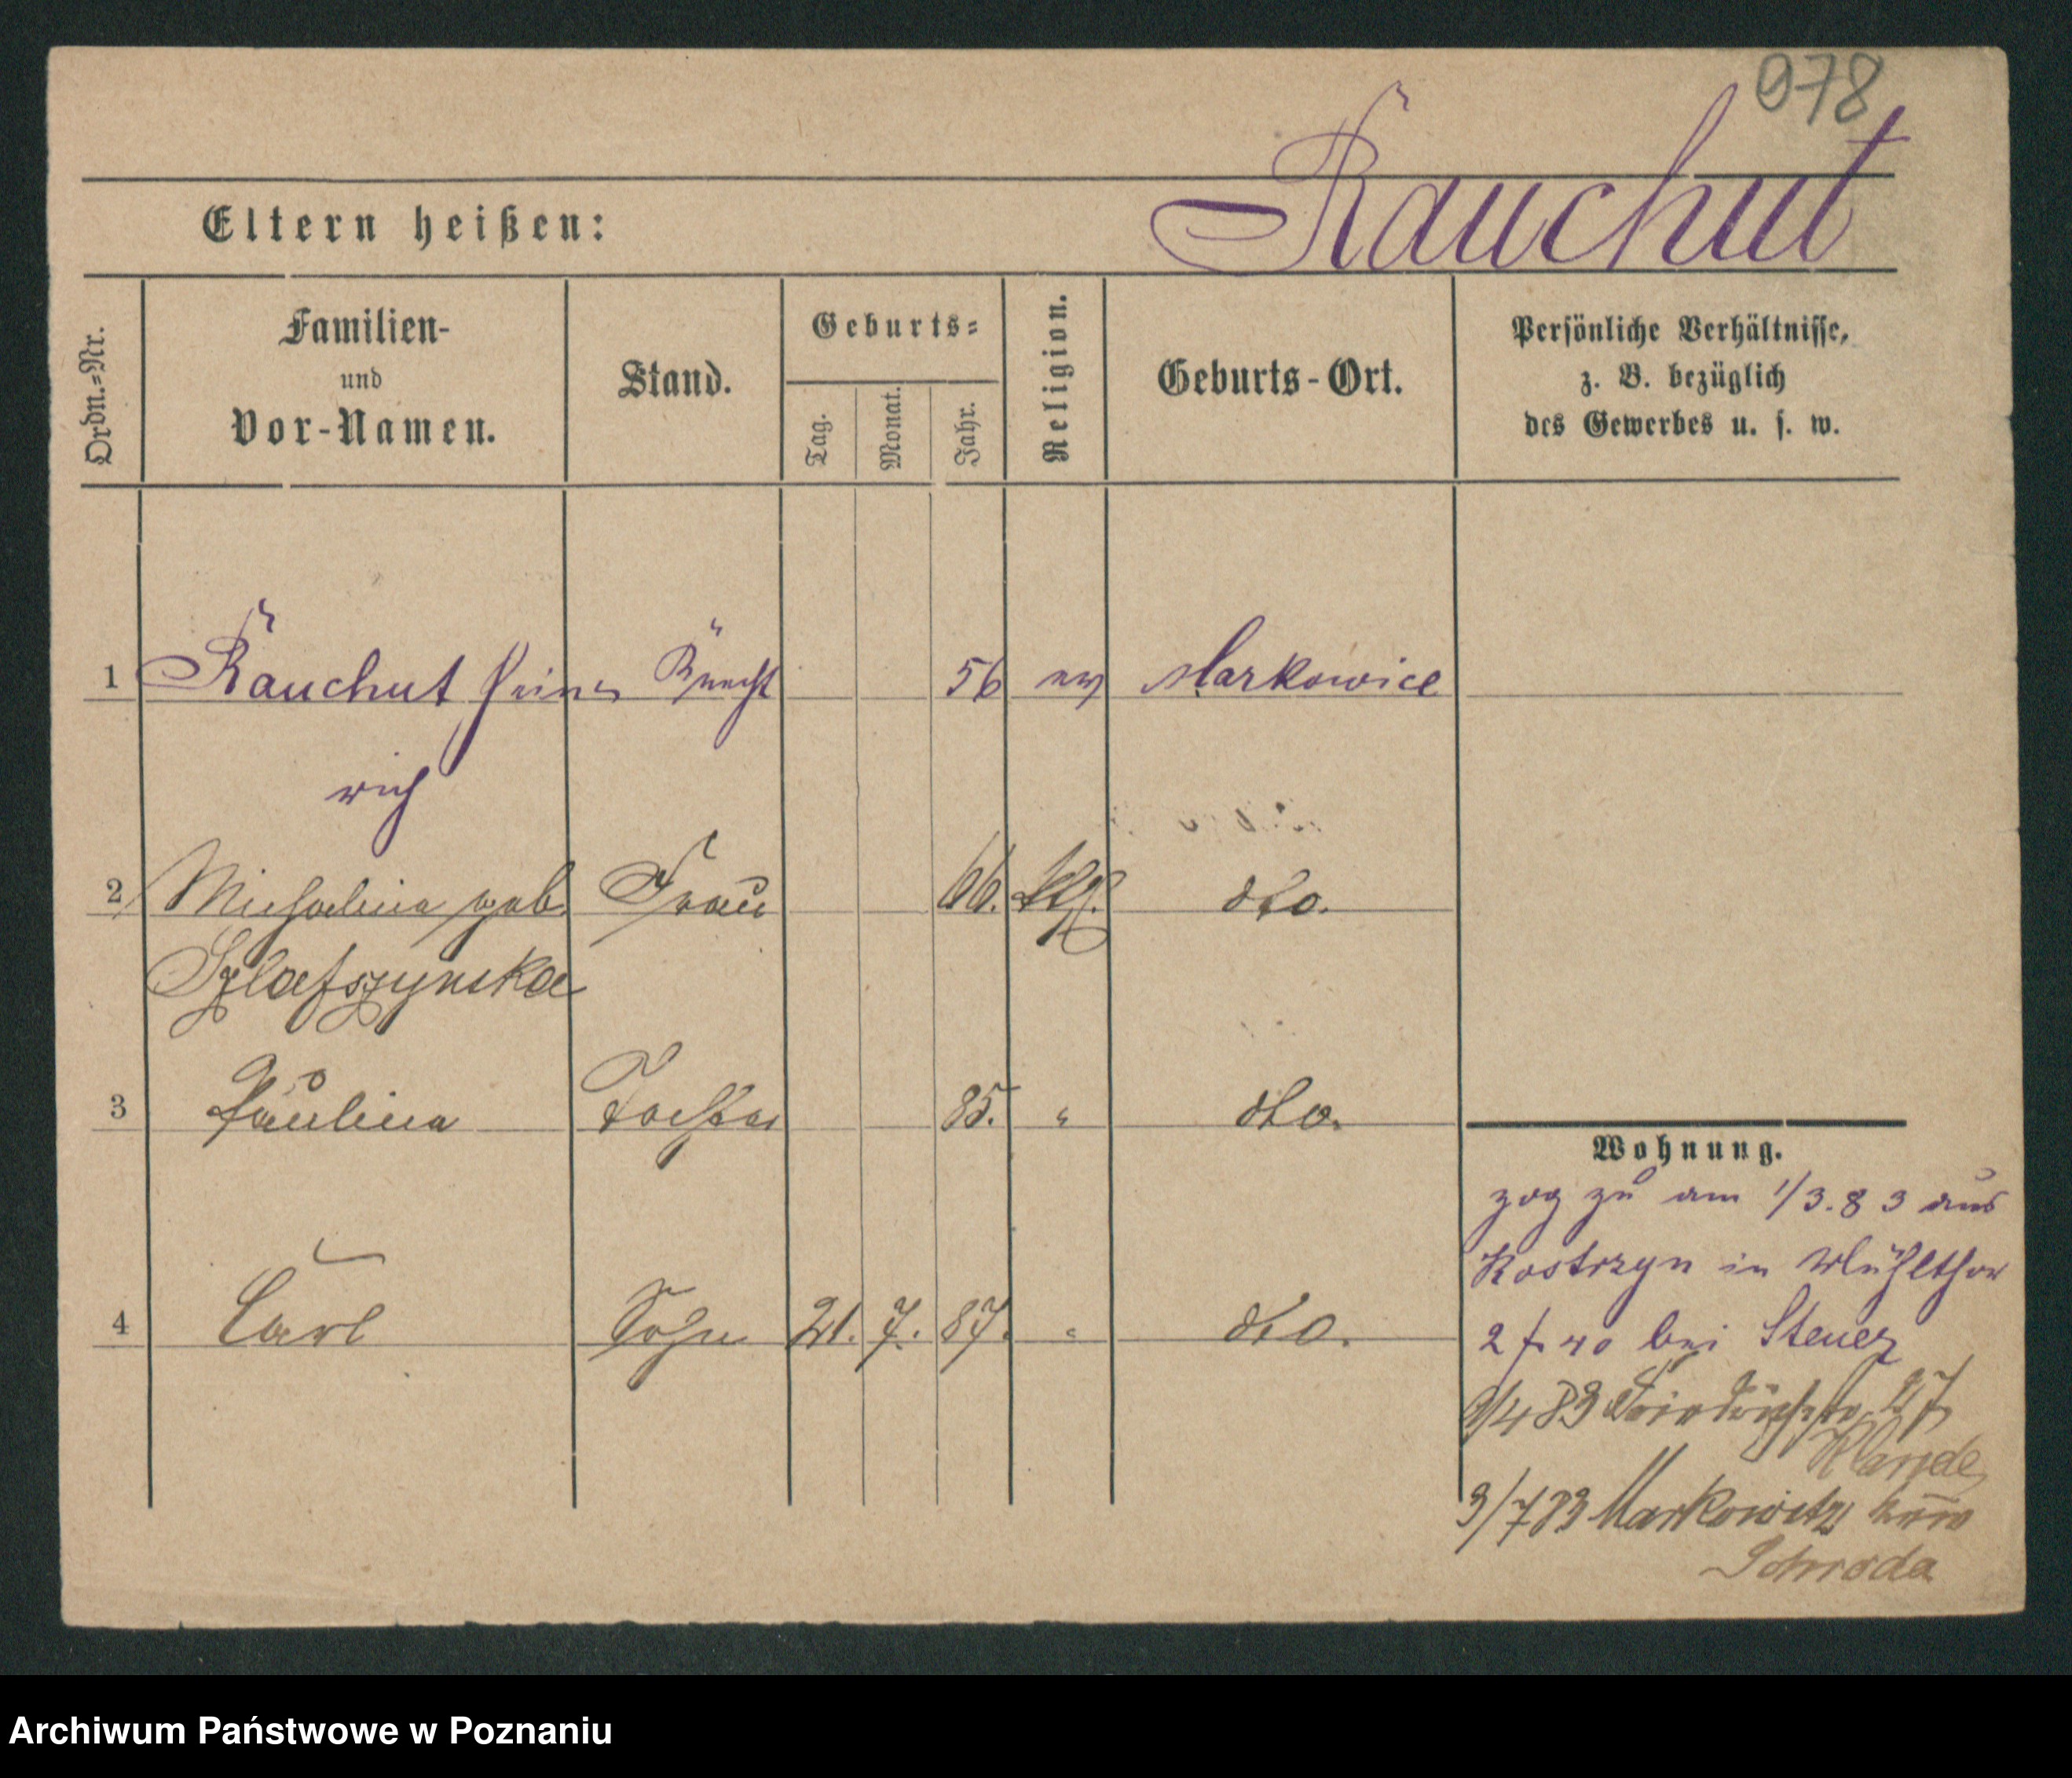 978
Rauchut
Eltern heißen:
Ordn.=Nr.
Familien-
und
Vor-Namen.
Stand.
Geburts=
Tag.
Monat.
Jahr.
Religion.
Geburts-Ort.
Persönliche Verhältnisse,
z. B. bezüglich
des Gewerbes u. s. w.
1 Rauchut Hein- Knecht 56 ev Markowice
rich
2 Michalina geb. Frau 66. kth. dto.
3 Paulina Tochter 85. " dto.
4 Carl Sohn 21. 7. 87. " dto.
Wohnung.
zog zu am 1/3.83 aus
Kostrzyn in Mühlthor
bei Steuer
83 27
3/7 83 Markowitz
Schroda
Archiwum Państwowe w Poznaniu